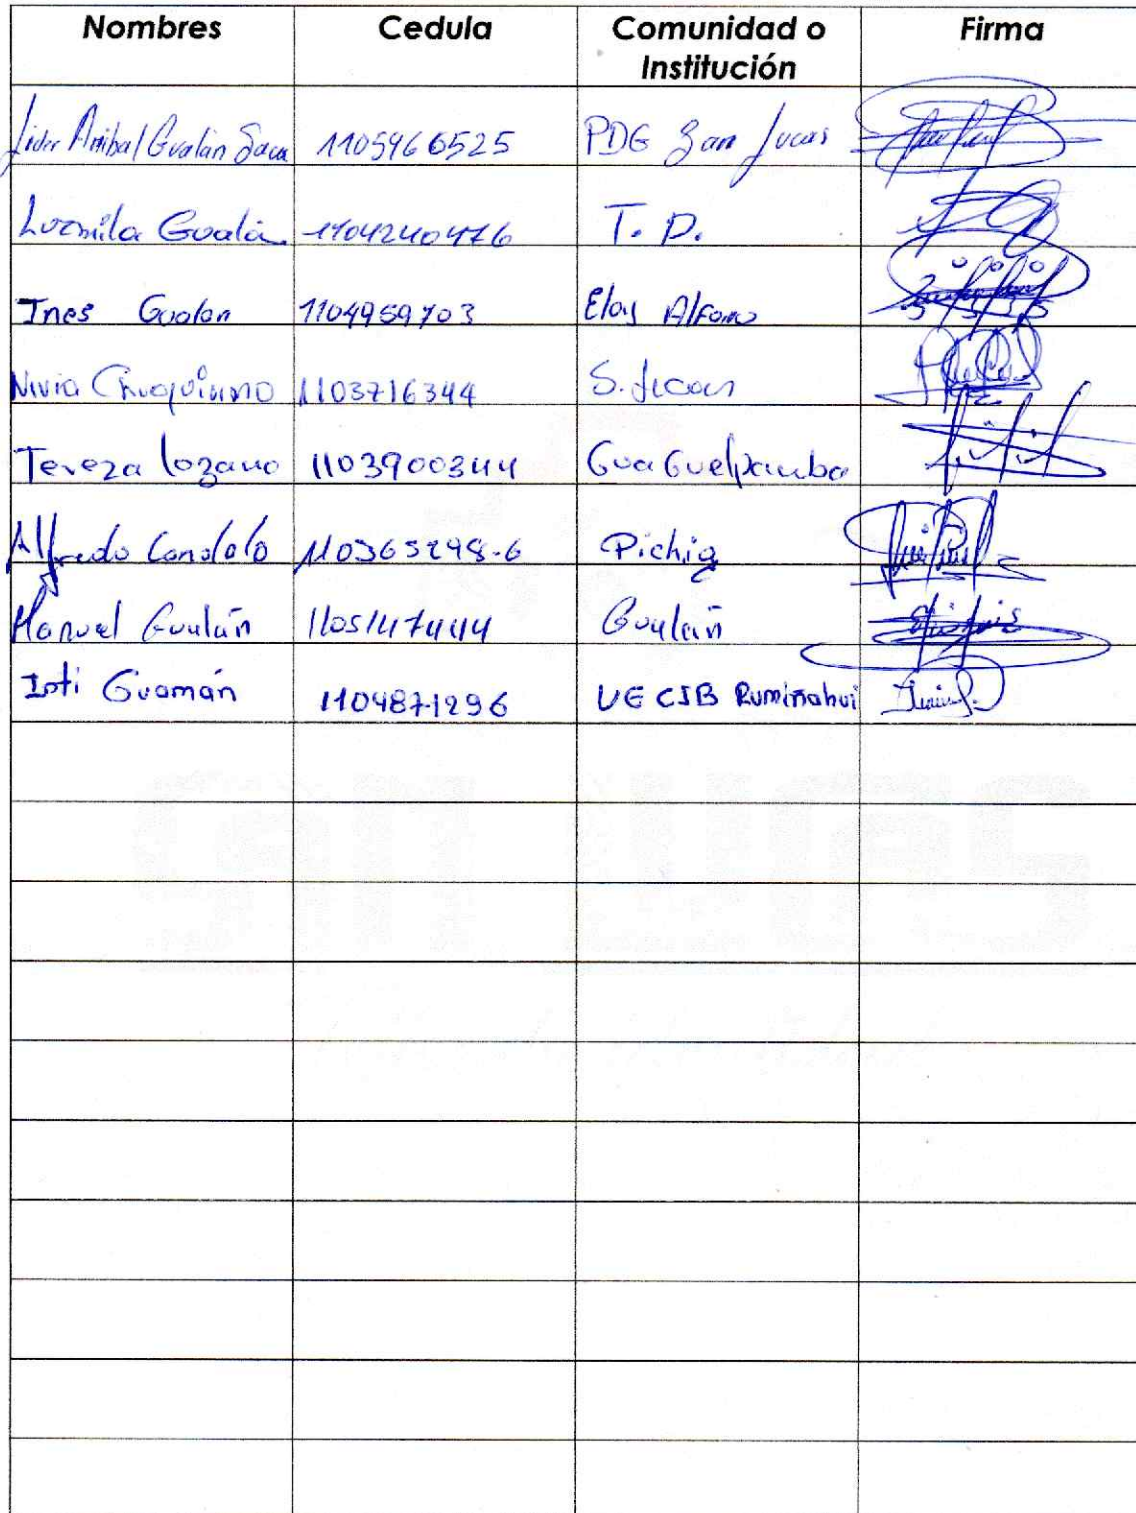 Nombres Cedula Comunidad o Institución Firma
Lider Anibal Gualan Saca 1105966525 PDG San Lucas
Luzmila Gualán 1104240476 T. D.
Ines Gualan 1104959703 Eloy Alfaro
Nivia Chuquirima 1103716344 S. Lucas
Tereza Lozano 1103900344 GuaGuelpamba
Alfredo Condolo 110365298-6 Pichig
Manuel Gualán 1105147444 Gualán
Inti Guamán 1104871296 UE CIB Rumiñahui